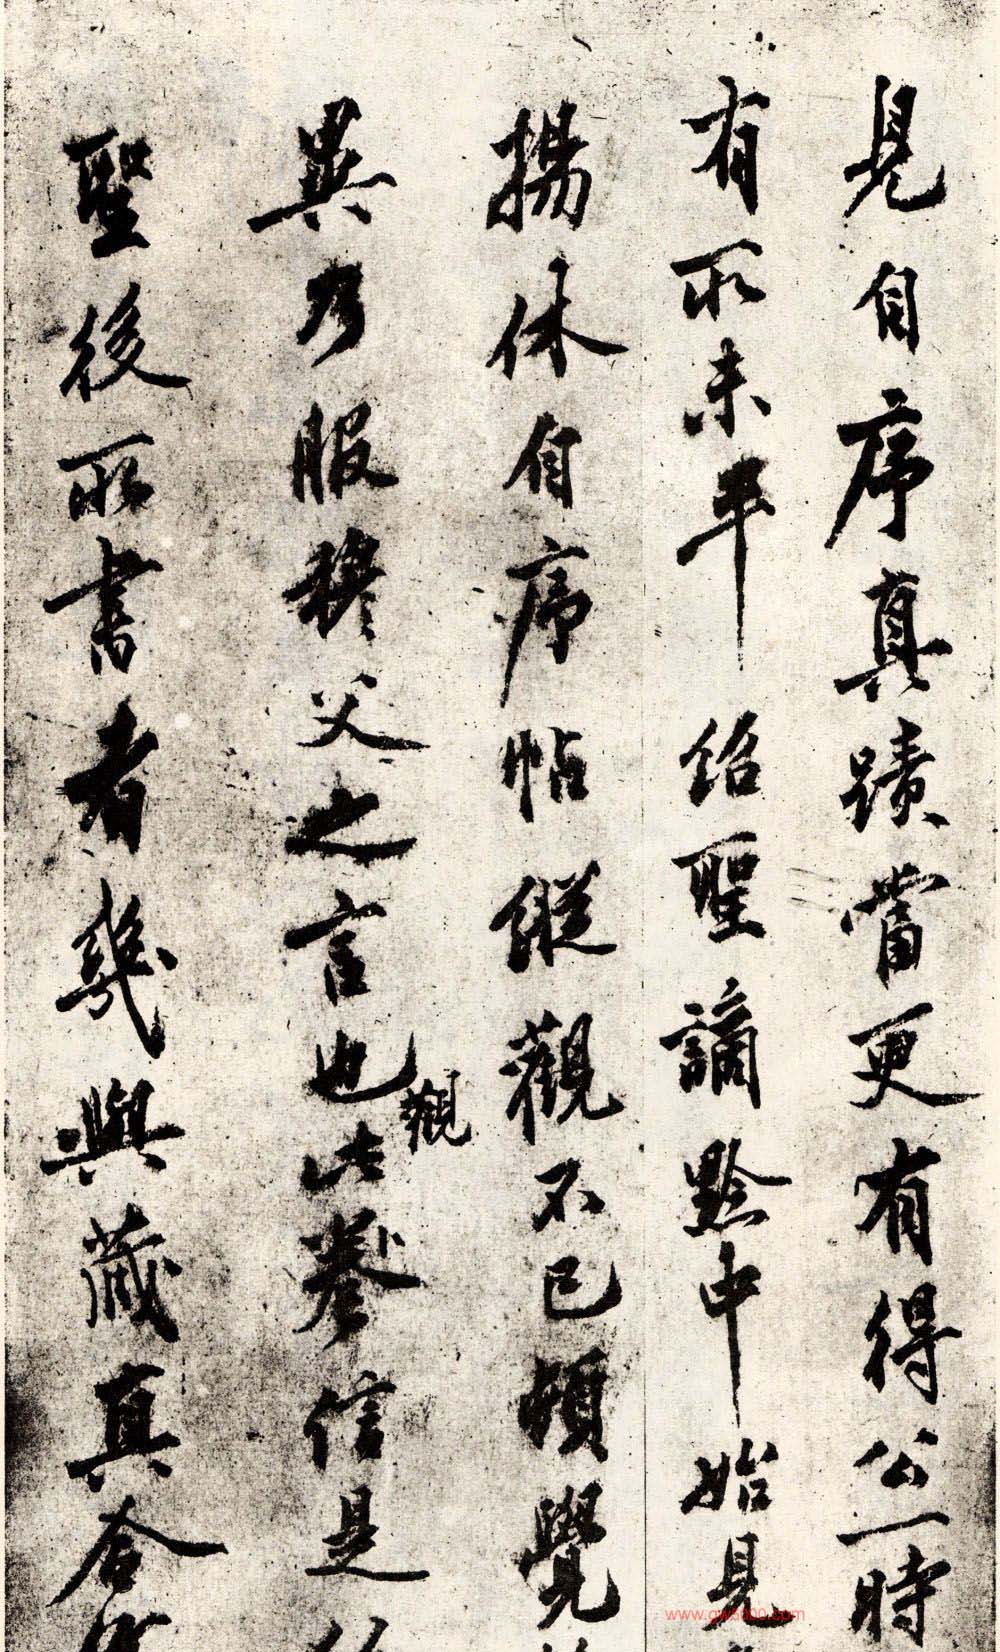 見自序真蹟嘗更有得公一時
有所未平紹聖謫黔中始見
揚休自序帖縱觀不已頓覺
異乃服穆父之言也此卷信是
觀
聖後所書者幾與藏真合
www.gw5000.com